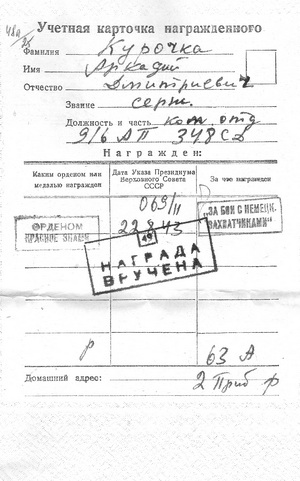 Учетная карточка награжденного
Фамилия Курочка
Имя Аркадий
Отчество Дмитриевич
Звание серж.
Должность и часть ком. отд.
916 АП 348 СД
Награжден:
Каким орденом или медалью награжден
Дата Указа Президиума Верховного Совета СССР
За что награжден
069/н
ОРДЕНОМ
КРАСНОЕ ЗНАМЯ
22.8.43
„ЗА БОИ С НЕМЕЦК.
ЗАХВАТЧИКАМИ“
49
НАГРАДА
ВРУЧЕНА
63 А
Домашний адрес: 2 Приб ф